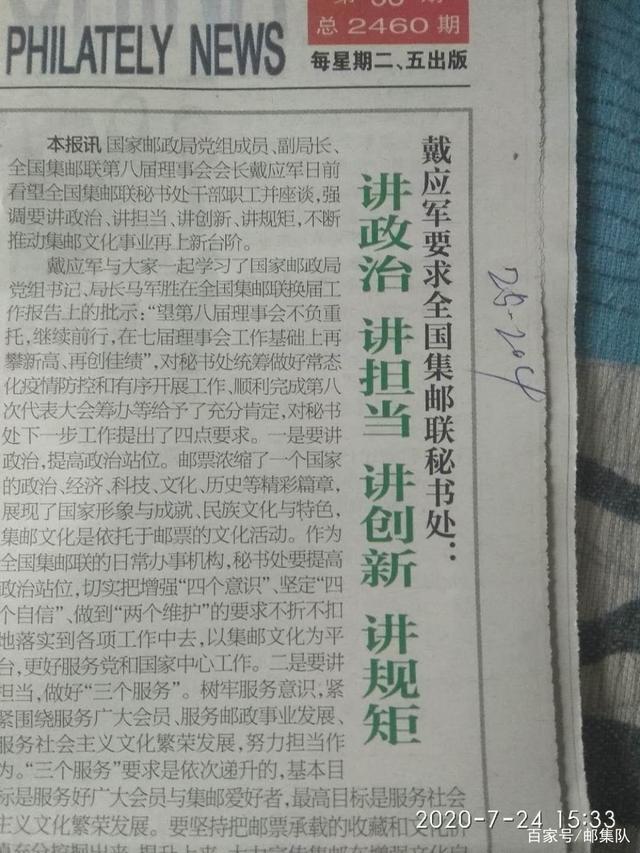 PHILATELY NEWS
总2460期
每星期二、五出版
戴应军要求全国集邮联秘书处：
讲政治 讲担当 讲创新 讲规矩
本报讯 国家邮政局党组成员、副局长、
全国集邮联第八届理事会会长戴应军日前
看望全国集邮联秘书处干部职工并座谈，强
调要讲政治、讲担当、讲创新、讲规矩，不断
推动集邮文化事业再上新台阶。
戴应军与大家一起学习了国家邮政局
党组书记、局长马军胜在全国集邮联换届工
作报告上的批示：“望第八届理事会不负重
托，继续前行，在七届理事会工作基础上再
攀新高、再创佳绩”，对秘书处统筹做好常态
化疫情防控和有序开展工作、顺利完成第八
次代表大会筹办等给予了充分肯定，对秘书
处下一步工作提出了四点要求。一是要讲
政治，提高政治站位。邮票浓缩了一个国家
的政治、经济、科技、文化、历史等精彩篇章，
展现了国家形象与成就、民族文化与特色，
集邮文化是依托于邮票的文化活动。作为
全国集邮联的日常办事机构，秘书处要提高
政治站位，切实把增强“四个意识”、坚定“四
个自信”、做到“两个维护”的要求不折不扣
地落实到各项工作中去，以集邮文化为平
台，更好服务党和国家中心工作。二是要讲
担当，做好“三个服务”。树牢服务意识，紧
紧围绕服务广大会员、服务邮政事业发展、
服务社会主义文化繁荣发展，努力担当作
为。“三个服务”要求是依次递升的，基本目
标是服务好广大会员与集邮爱好者，最高目标是服务社会
主义文化繁荣发展。要坚持把邮票承载的收藏和文化价
25-204
2020-7-24 15:33
百家号/邮集队